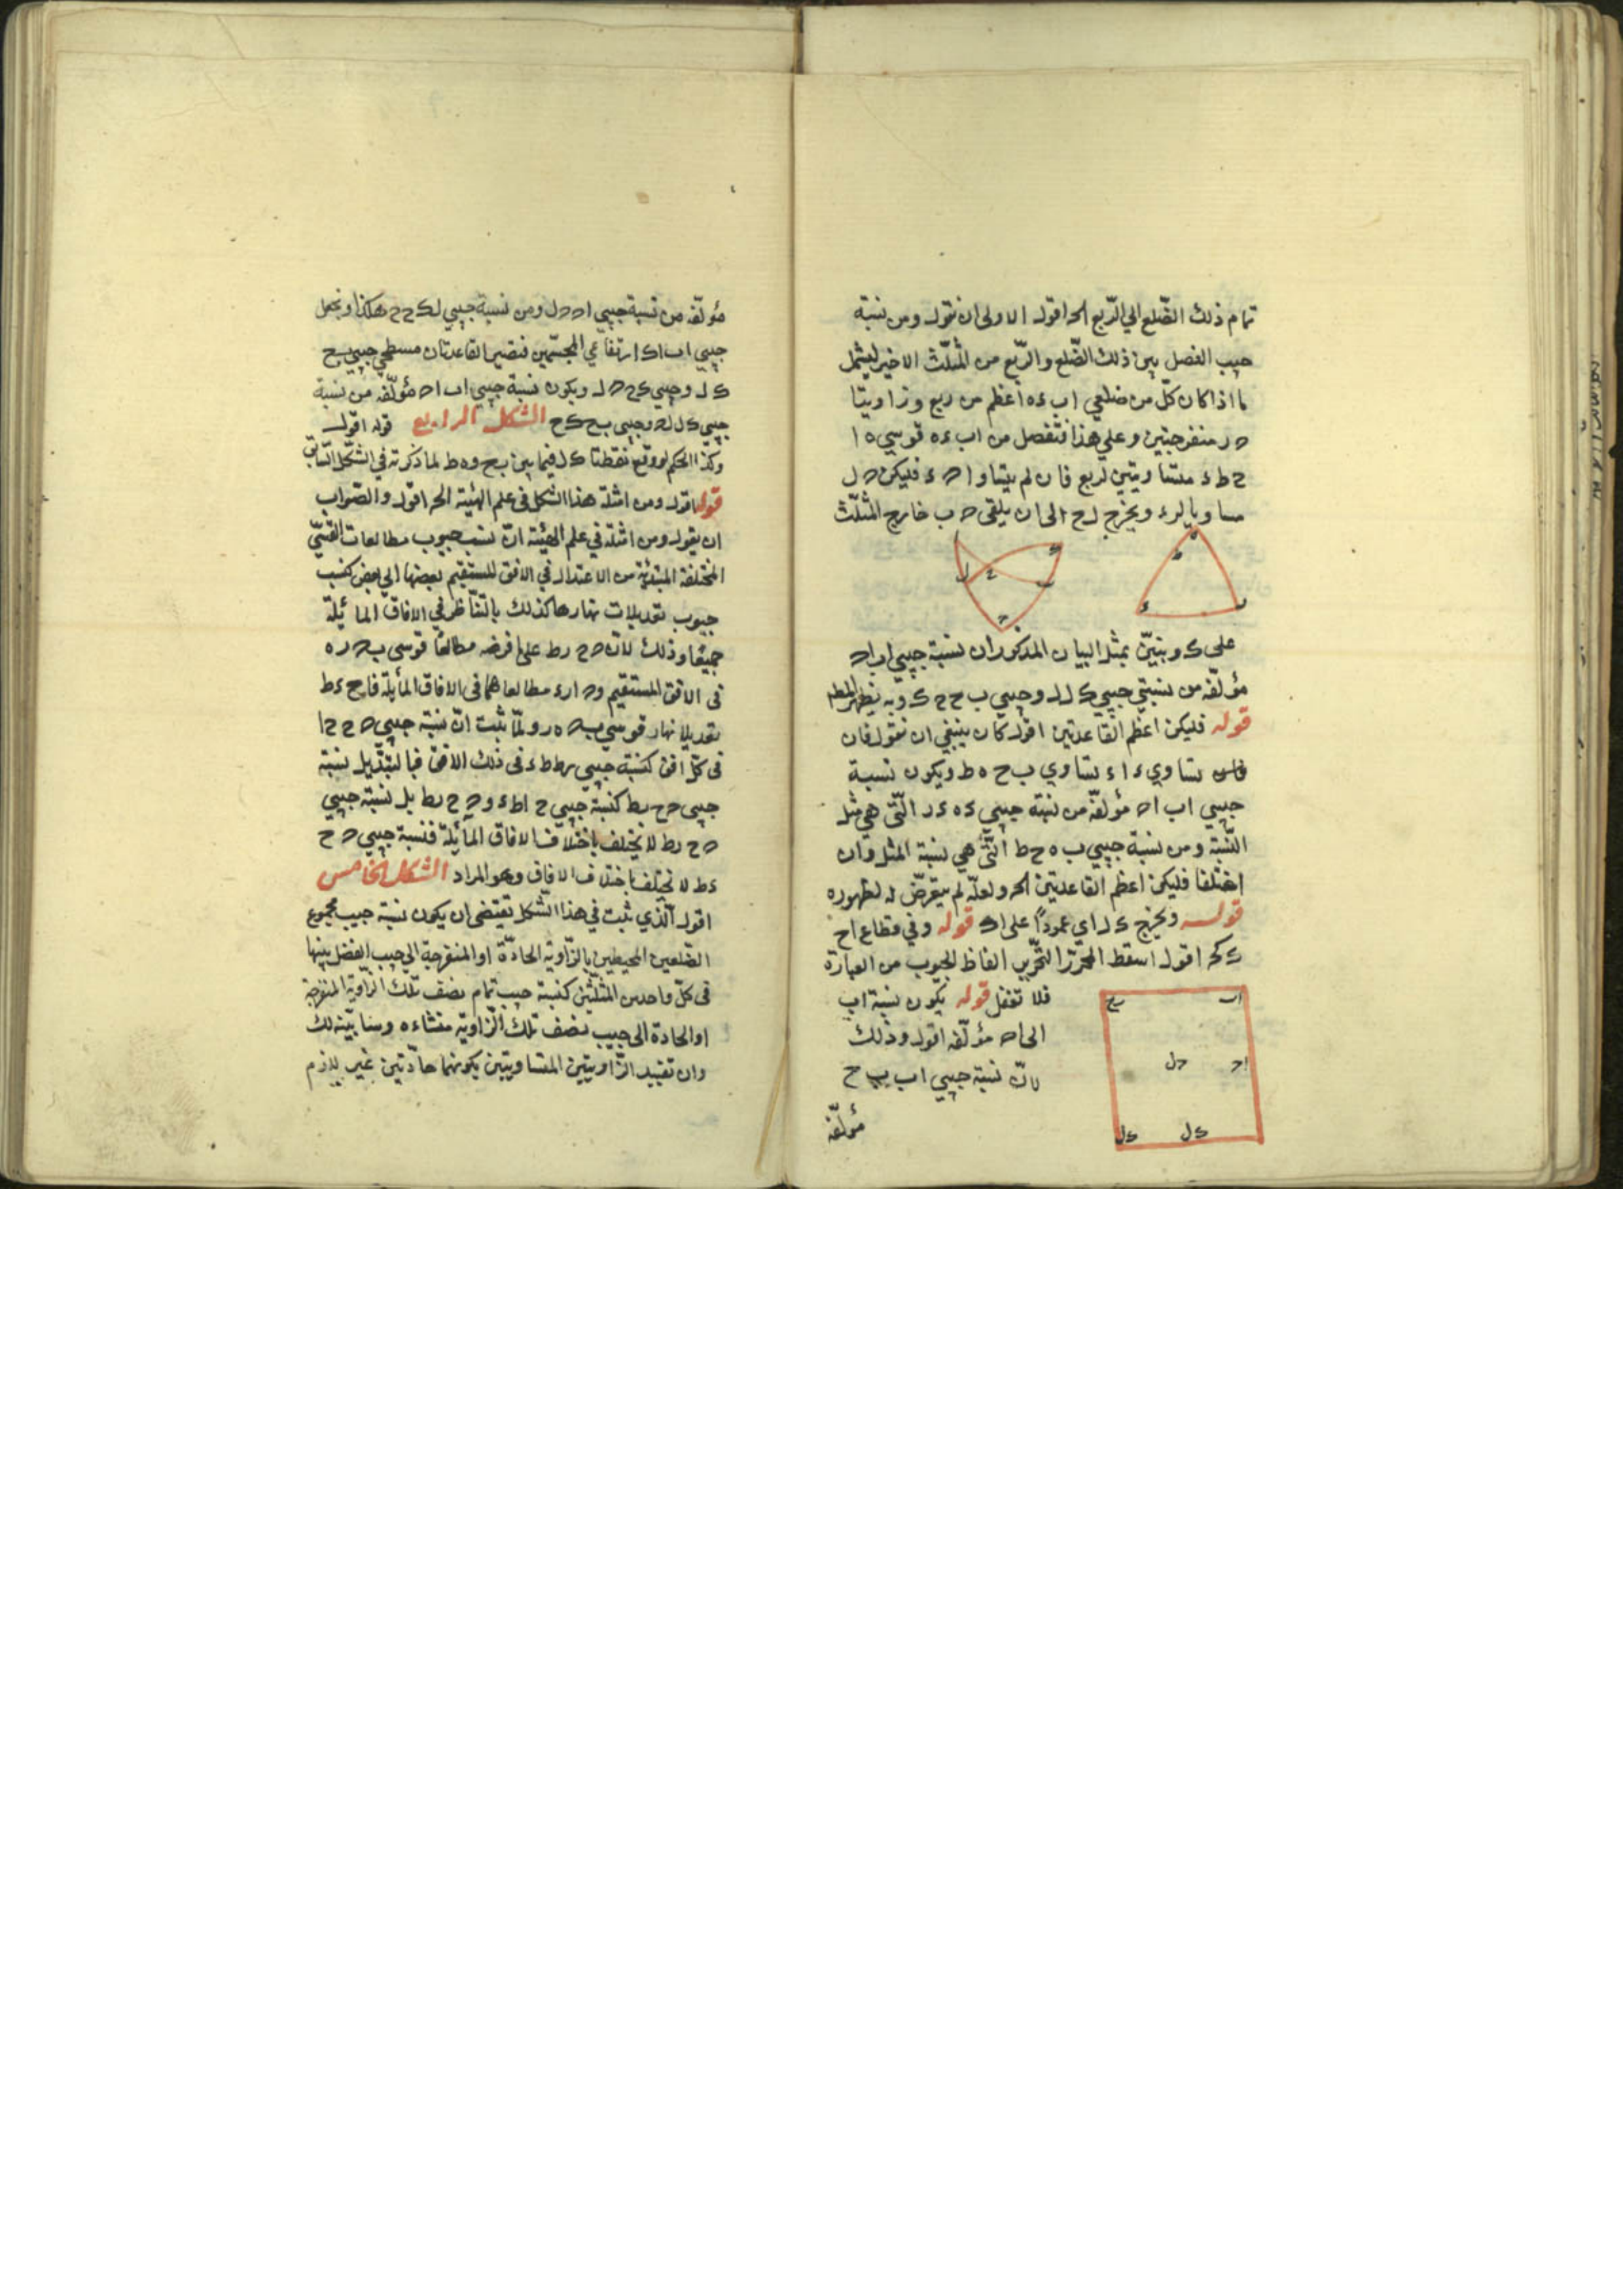 تمام ذلك الضّلع الي الرّبع الخ اقول الاولى ان نقول ومن نسبة
جيب الفصل بين ذلك الضّلع والرّبع من المثلّث الاخير ليشمل
ما اذا كان كلّ من ضلعي اب ءه اعظم من ربع وزاويتا
ه ر منفرجتين وعلي هذا فتفصل من اب ءه قوسي ه ا
ح ط ء متساويتين لربع فان لم يتساوا ه ء فليكن ه ل
مساويا لرء ويخرج ل ح الى ان يلقى ه ب خارج المثلّث
على ك ونبيّن بمثل البيان المذكور ان نسبة جيبي اب اه
مؤلّفه من نسبتي جيبي ك ل ل وجيبي ب ح ح ك وبه يظهر المط
قوله فليكن اعظم القاعدتين اقول كان ينبغي ان نقول فان
تساوي ء ا ء تساوي ب ح ه ط ويكون نسبة
جيبي اب اه مؤلفّة من نسبة جيبي ءه ءر الّتى هي مثل
النّسبة ومن نسبة جيبي ب ه ح ط الّتى هي نسبة المثل وان
اختلفا فليكن اعظم القاعدتين الخ ولعلّه لم يتعرّض له لظهوره
قوله ويخرج ك ل اى عمودًا على اك قوله وفي قطاع اح
ك ك الخ اقول اسقط المحرّر التحّرير الفاظ الجيوب من العبارة
فلا تغفل قوله يكون نسبة اب
الى اه مؤلّفه اقول وذلك
لانّ نسبة جيبي اب ب ح
مؤلّفه
اب
ح
اح
دل
ك ل
ك ل
مؤلّفه من نسبة جيبي اه ه ل ومن نسبة جيبي ل ك ح ح هكذا ونجعل
جيبي اب اك ارتفاعي المجسّمين فنصير القاعدتان مسطحي جيبي ب ح
ك ل وجيبي ك ح ه ل ويكون نسبة جيبي اب اه مؤلّفه من نسبة
جيبي ك ل ل ه وجيبي ب ح ك ح الشكل الرابع قوله اقول
وكذا الحكم لو وقع نقطتا ك ل فيما بين ب ح وه ط لما ذكرته في الشكل السّابق
قوله اقول ومن امثلة هذا الشكل في علم الهيئة الخ اقول والصّواب
ان يقول ومن امثلته في علم الهيئة انّ نسب جيوب مطالعات القسيّ
المختلفة المبتدئة من الاعتدال في الافق المستقيم بعضها الى بعض كنسب
جيوب تعديلات نهارها كذلك بالتّناظر في الافاق المائلة
جميعًا وذلك لانّ ه ح رط على ما فرضه مطالعا قوسي ب ه ر ه
في الافق المستقيم وه ا رء مطالعاهما في الافاق المائلة فاح ءط
تعديلا نهار قوسي ب ه ه ر ولمّا ثبت انّ نسبة جيبي ه ح ح ا
في كلّ افق كنسبة جيبي رط ط ء في ذلك الافق فبالتبديل نسبة
جيبي ه ح رط كنسبة جيبي ح ا ط ء و ه ح رط بل نسبة جيبي
ه ح رط لا يختلف باختلاف الافاق المائلة فنسبة جيبي ه ح
ءط لا يختلف باختلاف الافاق وهو المراد الشكل الخامس
اقول الّذي ثبت في هذا الشكل تقتضى ان يكون نسبة جيب مجموع
الضّلعين المحيطين بالزّاوية الحادّة او المنفرجة الى جيب الفضل بينها
في كلّ واحد من المثلّثين كنسبة جيب تمام نصف تلك الزّاوية المنفرجة
او الحادة الى جيب نصف تلك الزّاوية
وان تقييد الزّاويتين المتساويتين بكونهما حادّتين غير لازم